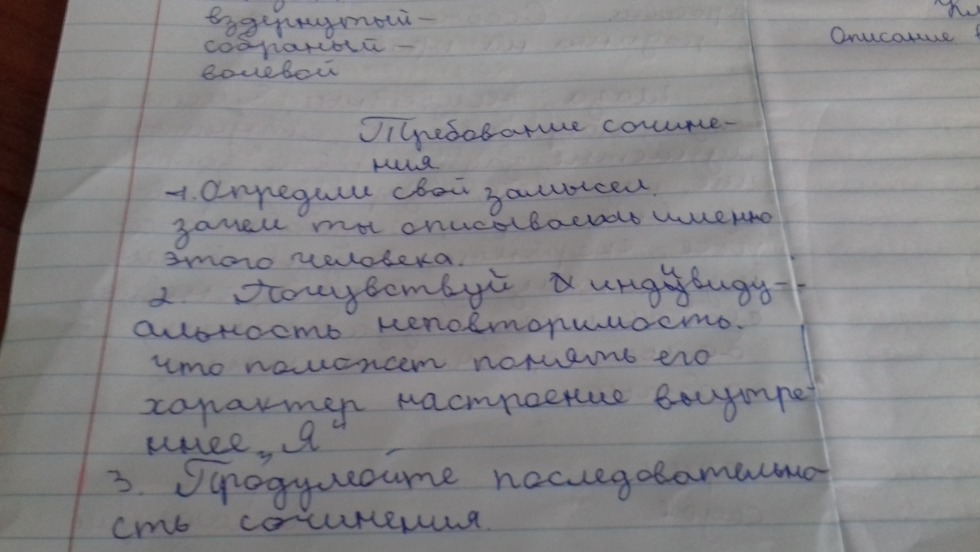 вздернутый -
собраный -
волевой
Описание
Требование сочине-
ния
1. Определи свой замысел.
зачем ты описываешь именно
этого человека.
2. Почувствуй индивиду-
альность неповторимость.
что поможет понять его
характер настроение внутре-
ннее „Я"
3. Продумайте последовательно
сть сочинения.